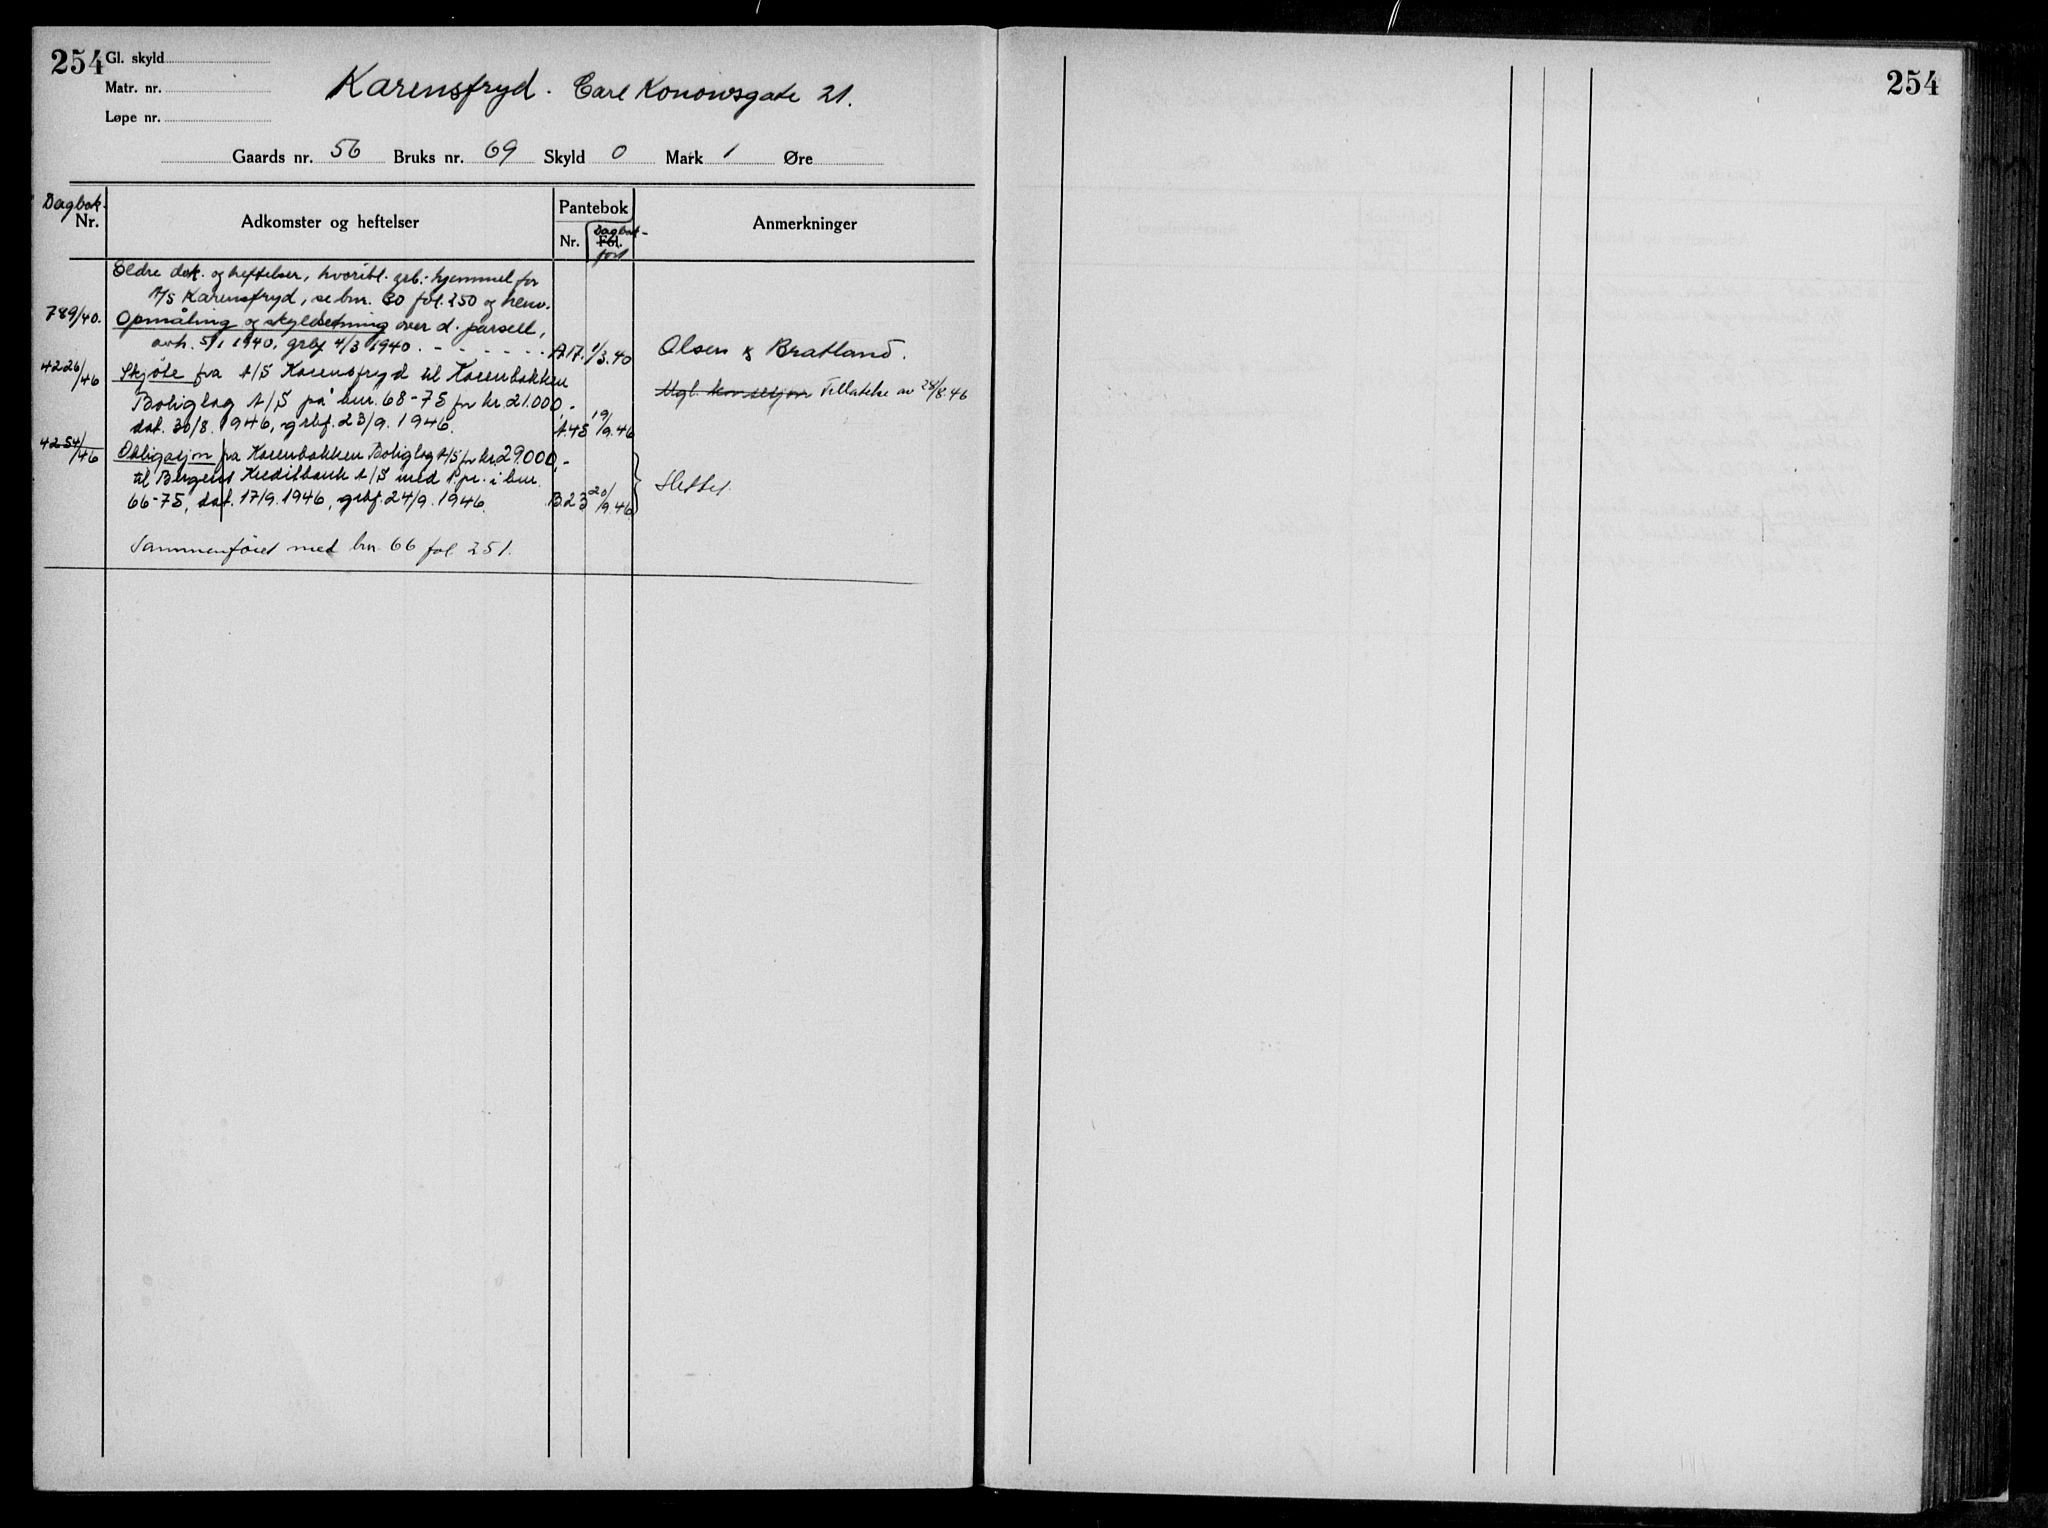 254
Gl. skyld
Matr. nr.
Løpe nr.
Karensfryd. Carl Konowsgate 21.
Gaards nr. 56 Bruks nr. 69 Skyld 0 Mark 1 Øre
Dagbok-
Nr.
Adkomster og heftelser
Pantebok
Nr.
Fol.
Dagbok-
ført
Anmerkninger
Eldre dok. og heftelser, hvoribl. grb.-hjemmel for
A/S Karensfryd, se bnr. 30 fol. 250 og henv.
789/40. Opmåling og skyldsetning over d. parsell,
avh. 5/1 1940, grbf 4/3 1940. - - - - - . . A17. 1/3.40 Olsen & Bratland.
4226/46 Skjøte fra A/S Karensfryd til Karenbakken
Boliglag A/S på bnr. 68-75 for kr. 21.000,-
Mgl. konsesjon Tillatelse av 28/8.46
dat. 30/8. 1946, grbf. 23/9. 1946. A.45 19/9.46
4254/46 Obligasjon fra Karenbakken Boliglag A/S for kr. 29.000,-
til Bergens Kreditbank A/S med 1. pr. i bnr.
66-75, dat. 17/9. 1946, grbf. 24/9. 1946. B.23 20/9.46 Slettet.
Sammenføiet med bnr. 66 fol. 251.
254